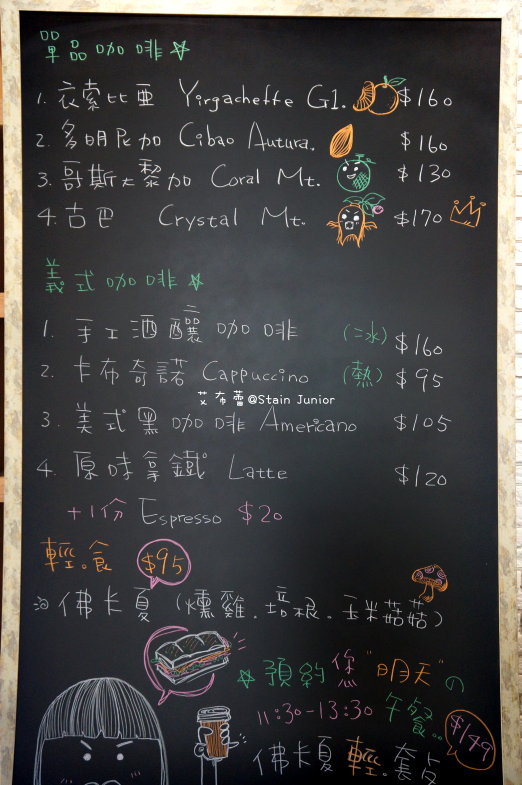 單品咖啡☆
1. 衣索比亞 Yirgacheffe G1. $160
2. 多明尼加 Cibao Autura. $160
3. 哥斯大黎加 Coral Mt. $130
4. 古巴 Crystal Mt. $170
義式咖啡☆
1. 手工酒釀咖啡 (冰) $160
2. 卡布奇諾 Cappuccino (熱) $95
艾布蕾@Stain Junior
3. 美式黑咖啡 Americano $105
4. 原味拿鐵 Latte $120
+1份 Espresso $20
輕。食 $95
佛卡夏 (燻雞.培根.玉米菇菇)
☆預約您"明天"の
11:30-13:30 午餐。。
$149
佛卡夏輕。套